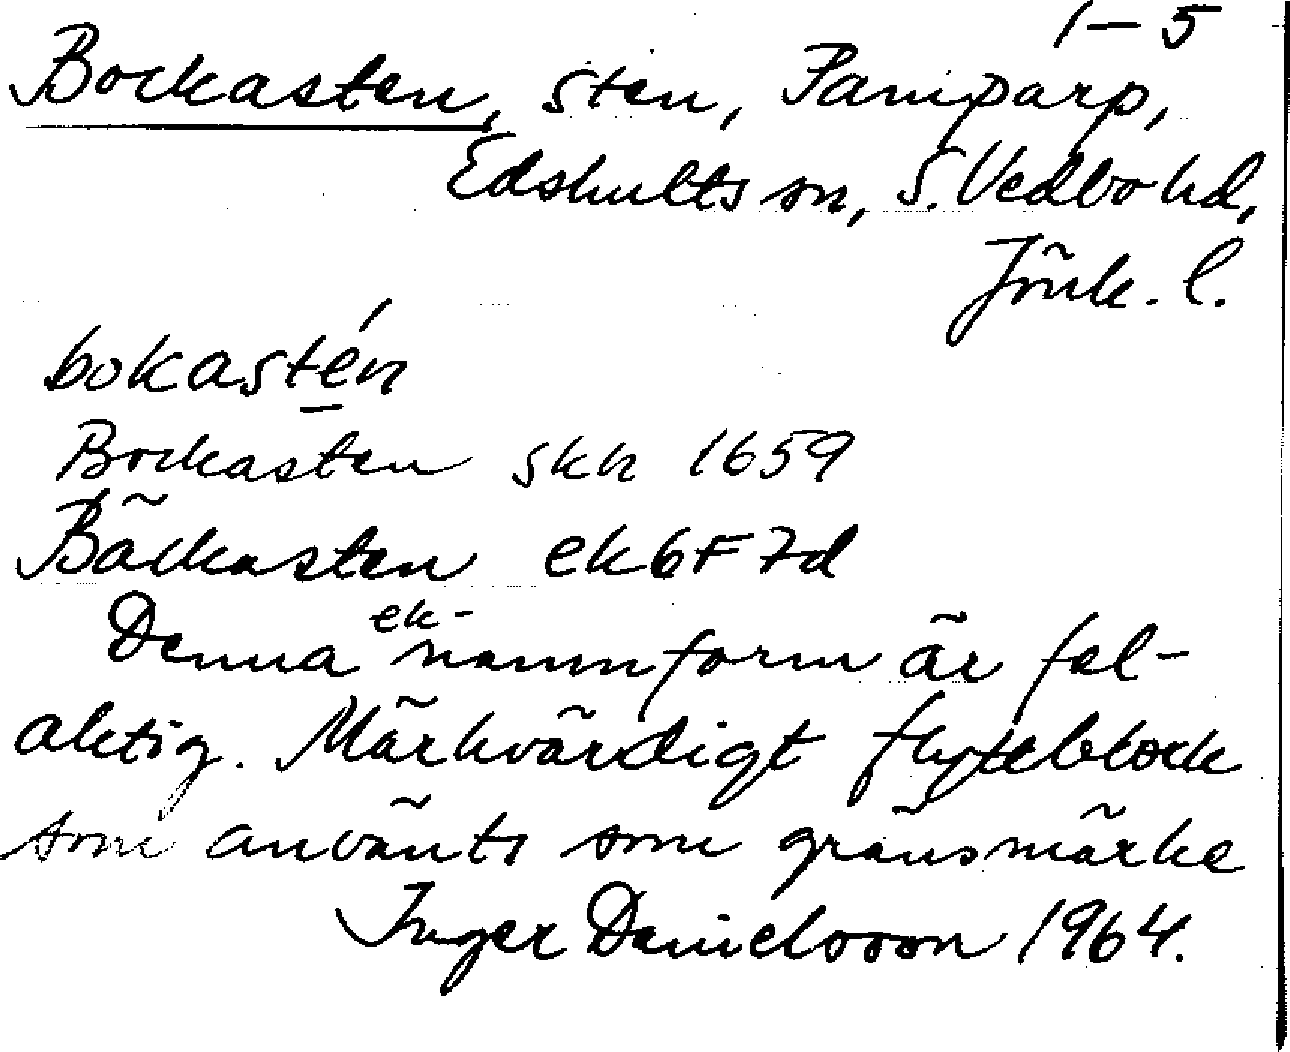 1–5
Bockasten, sten, Pamparp,
Edshults sn, S. Vedbo hd,
Jönk. l.
bokastén
Bockasten skh 1659
Bäckasten ek 6F 7d
Denna ek-namnform är fel-
aktig. Märkvärdigt flyttblock
som använts som gränsmärke
Inger Danielsson 1964.